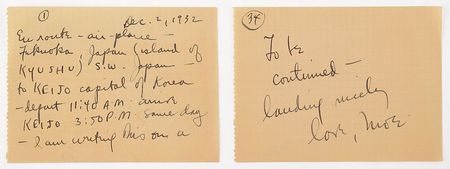 ①
Dec. 2, 1932
En route - air-plane -
Fukuoka, Japan (island of
KYUSHU) S.W. Japan -
to KEIJO capital of Korea
- depart 11:40 A.M. arrive
KEIJO 3:50 P.M. same day
- I am writing this on a
34
To be
continued -
landing nicely
love, Moe